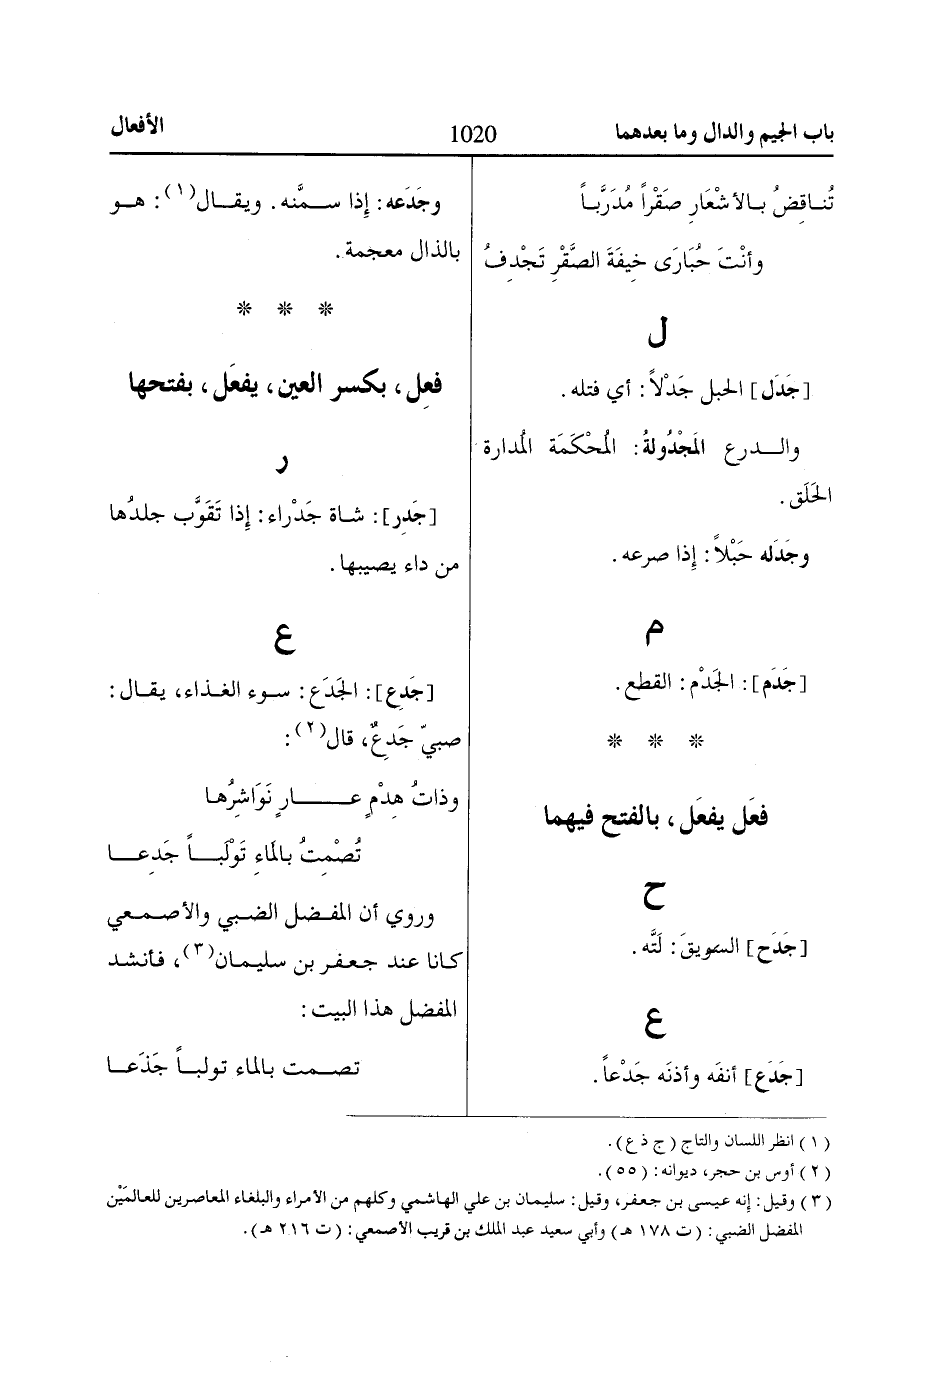 باب الجيم والدال وما بعدهما
1020
الأفعال
تُناقِضُ بالأشْعَارِ صَقْراً مُدَرَّباً
وأنْتَ حُبَارَى خيفَةَ الصَّقْرِ تَجْدِفُ
ل
[جَدَل] الحبل جَدْلاً: أي فتله.
والدرع المَجْدُولةُ: المُحْكَمَة المُدارة
الحَلَق.
وجَدَله حَبْلاً: إذا صرعه.
م
[جَدَم]: الجَدْم: القطع.
* * *
فعَل يفعَل، بالفتح فيهما
ح
[جَدَح] السويقَ: لَتَّه.
ع
[جَدَع] أنفَه وأذنَه جَدْعاً.
وجَدَعه: إذا سمَّنه. ويقال(١): هو
بالذال معجمة.
* * *
فعِل، بكسر العين، يفعَل، بفتحها
ر
[جَدِر]: شاة جَدْراء: إذا تَقَوَّب جلدُها
من داء يصيبها.
ع
[جَدِع]: الجَدَع: سوء الغذاء، يقال:
صبيّ جَدِعٌ، قال(٢):
وذاتُ هِدْمٍ عارٍ نَوَاشِرُها
تُصْمِتُ بالماءِ تَوْلَباً جَدِعا
وروي أن المفضل الضبي والأصمعي
كانا عند جعفر بن سليمان(٣)، فأنشد
المفضل هذا البيت:
تصمت بالماء تولباً جَذَعا
(١) انظر اللسان والتاج (ج ذ ع).
(٢) أوس بن حجر، ديوانه: (٥٥).
(٣) وقيل: إنه عيسى بن جعفر، وقيل: سليمان بن علي الهاشمي وكلهم من الأمراء والبلغاء المعاصرين للعالمَيْن
المفضل الضبي: (ت ١٧٨ هـ) وأبي سعيد عبد الملك بن قريب الأصمعي: (ت ٢١٦ هـ).